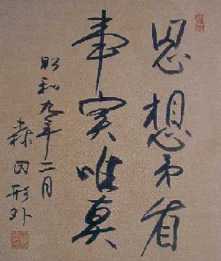 思想矛盾
事実唯真
昭和九年二月
森田形外